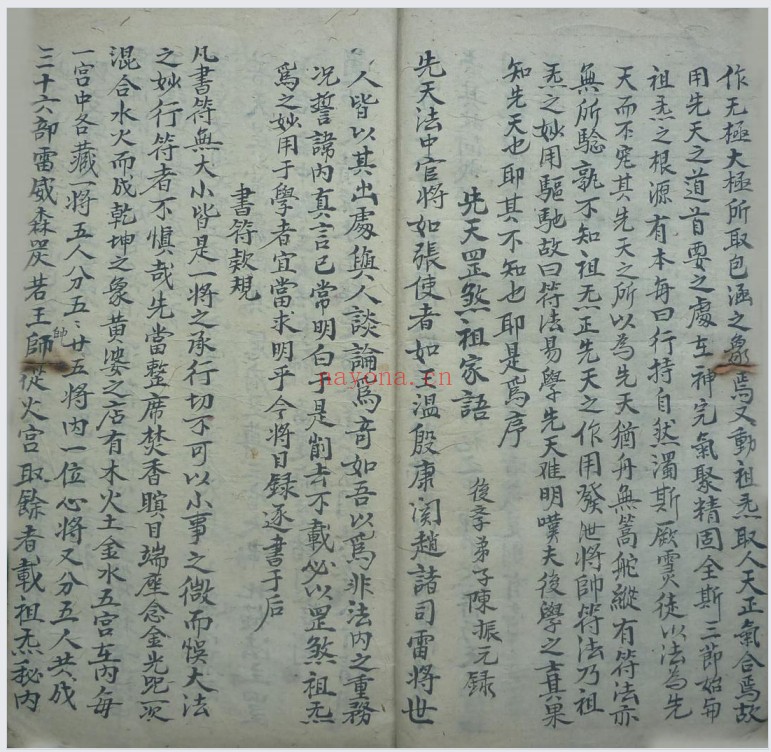 作无極大極所取包涵之象焉又動祖炁取人天正氣合焉故
用先天之道首要之處在神完氣聚精固全斯三節始旬
祖炁之根源有本每曰行持自然濁斯厥雪火徒以法為先
天而不究其先天之所以為先天猶舟無篙舵縱有符法亦
無所驗孰不知祖炁正先天之作用發泄將帥符法乃祖
炁之妙用驅馳故曰符法易學先天难明嘆夫後學之士其果
知先天也耶其不知也耶是爲序
先天罡煞祖家語
後孝弟子陳振元録
先天法中官將如張使者如王溫殷康関趙諸司雷將世
人皆以其出處與人談論爲奇如吾以爲非法内之重務
况誓諱内真言已常明白于是削去不載必以罡煞祖炁
爲之妙用于學者宜當求明乎今將目録逐書于后
書符欵規
凡書符無大小皆是一將之承行切不可以小事之微而悞大法
之妙行符者不慎哉先當整席焚香瞑目端座念金光咒一次
混合水火而成乾坤之象黄婆之店有木火土金水五宫在内每
一宫中各藏一將五人分五〻廿五將内一位心將又分五人共成
三十六部雷威森炭若王師從火宫取餘者載祖炁秘内
帥
nayona.cn